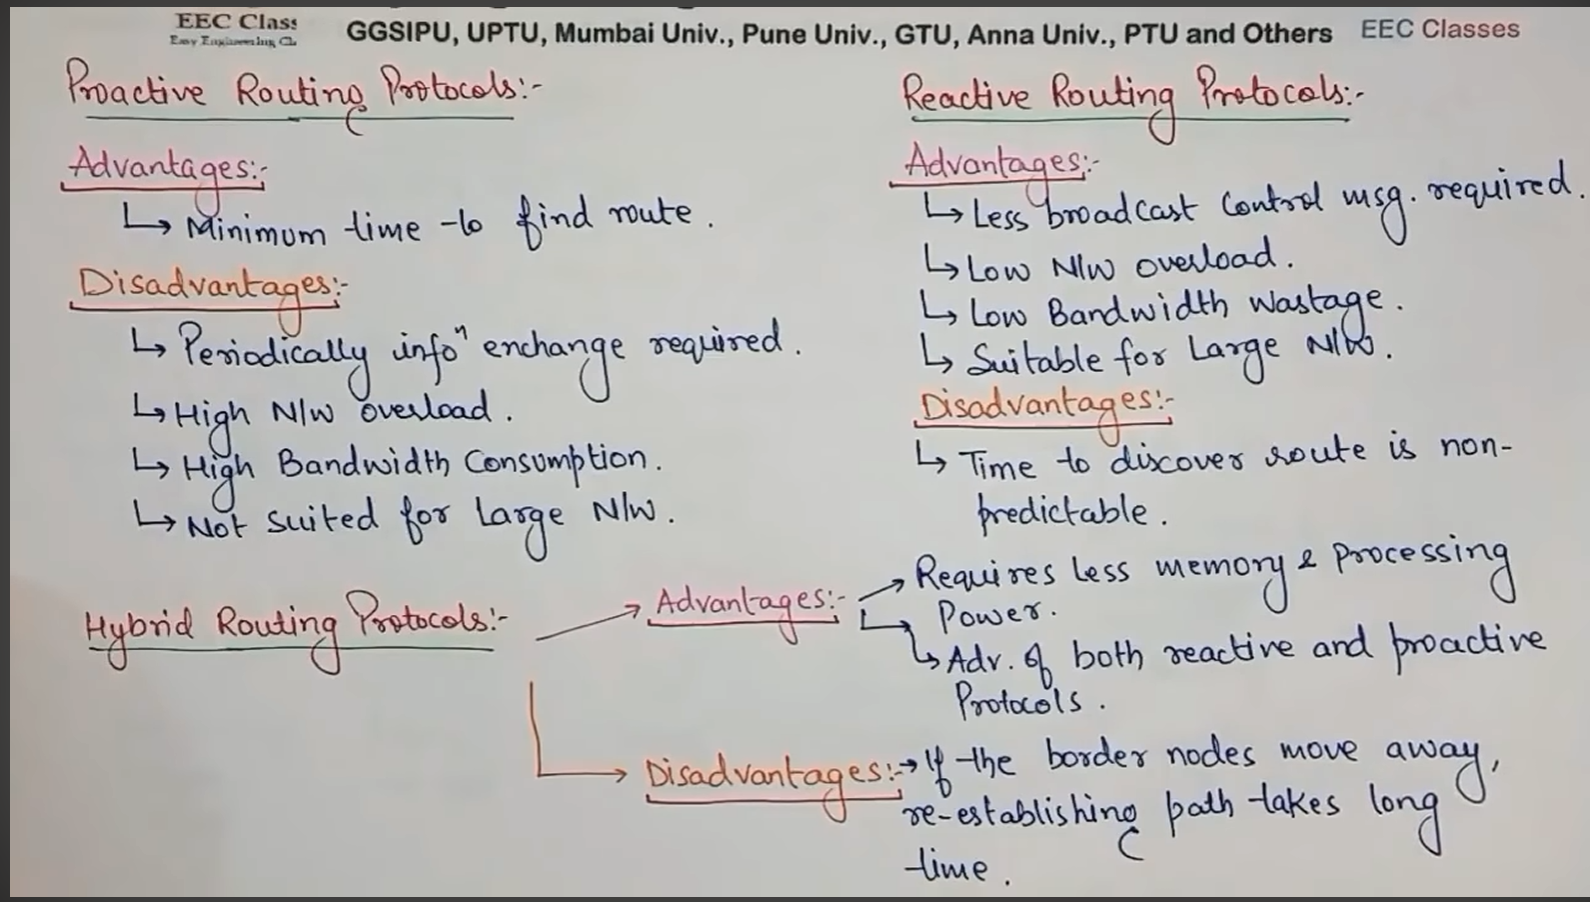 EEC Class
Easy Engineering Cl
GGSIPU, UPTU, Mumbai Univ., Pune Univ., GTU, Anna Univ., PTU and Others
EEC Classes
Proactive Routing Protocols:-
Advantages:-
↳ Minimum time to find route.
Disadvantages:-
↳ Periodically infoⁿ exchange required.
↳ High N/w overload.
↳ High Bandwidth Consumption.
↳ Not suited for Large N/w.
Reactive Routing Protocols:-
Advantages:-
↳ Less broadcast Control msg. required.
↳ Low N/w overload.
↳ Low Bandwidth wastage.
↳ Suitable for Large N/w.
Disadvantages:-
↳ Time to discover route is non-
predictable.
Hybrid Routing Protocols:-
→ Advantages:-
→ Requires Less memory & processing
Power.
↳ Adv. of both reactive and proactive
Protocols.
→ Disadvantages:- → If the border nodes move away,
re-establishing path takes long
time.